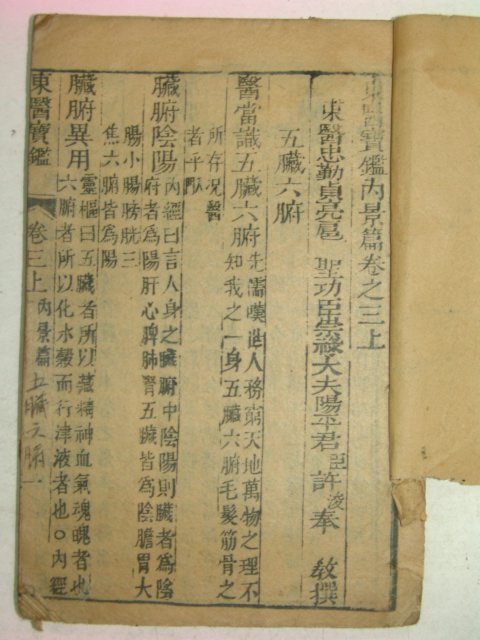 東醫寶鑑內景篇卷之三上
東醫忠勤貞亮扈 聖功臣崇祿大夫陽平君臣許浚奉 教撰
五臟六腑
醫當識五臟六腑先儒嘆世人務窮天地萬物之理不
知我之一身五臟六腑毛髮筋骨之
所存况醫
者乎
臟腑陰陽內經曰言人身之臟腑中陰陽則臟者爲陰
府者爲陽肝心脾肺腎五臟皆爲陰膽胃大
腸小腸膀胱三
焦六腑皆爲陽
臟腑異用靈樞曰五臟者所以藏精神血氣魂魄者也
六腑者所以化水穀而行津液者也○內經
東醫寶鑑 卷三上 內景篇 五臟六腑